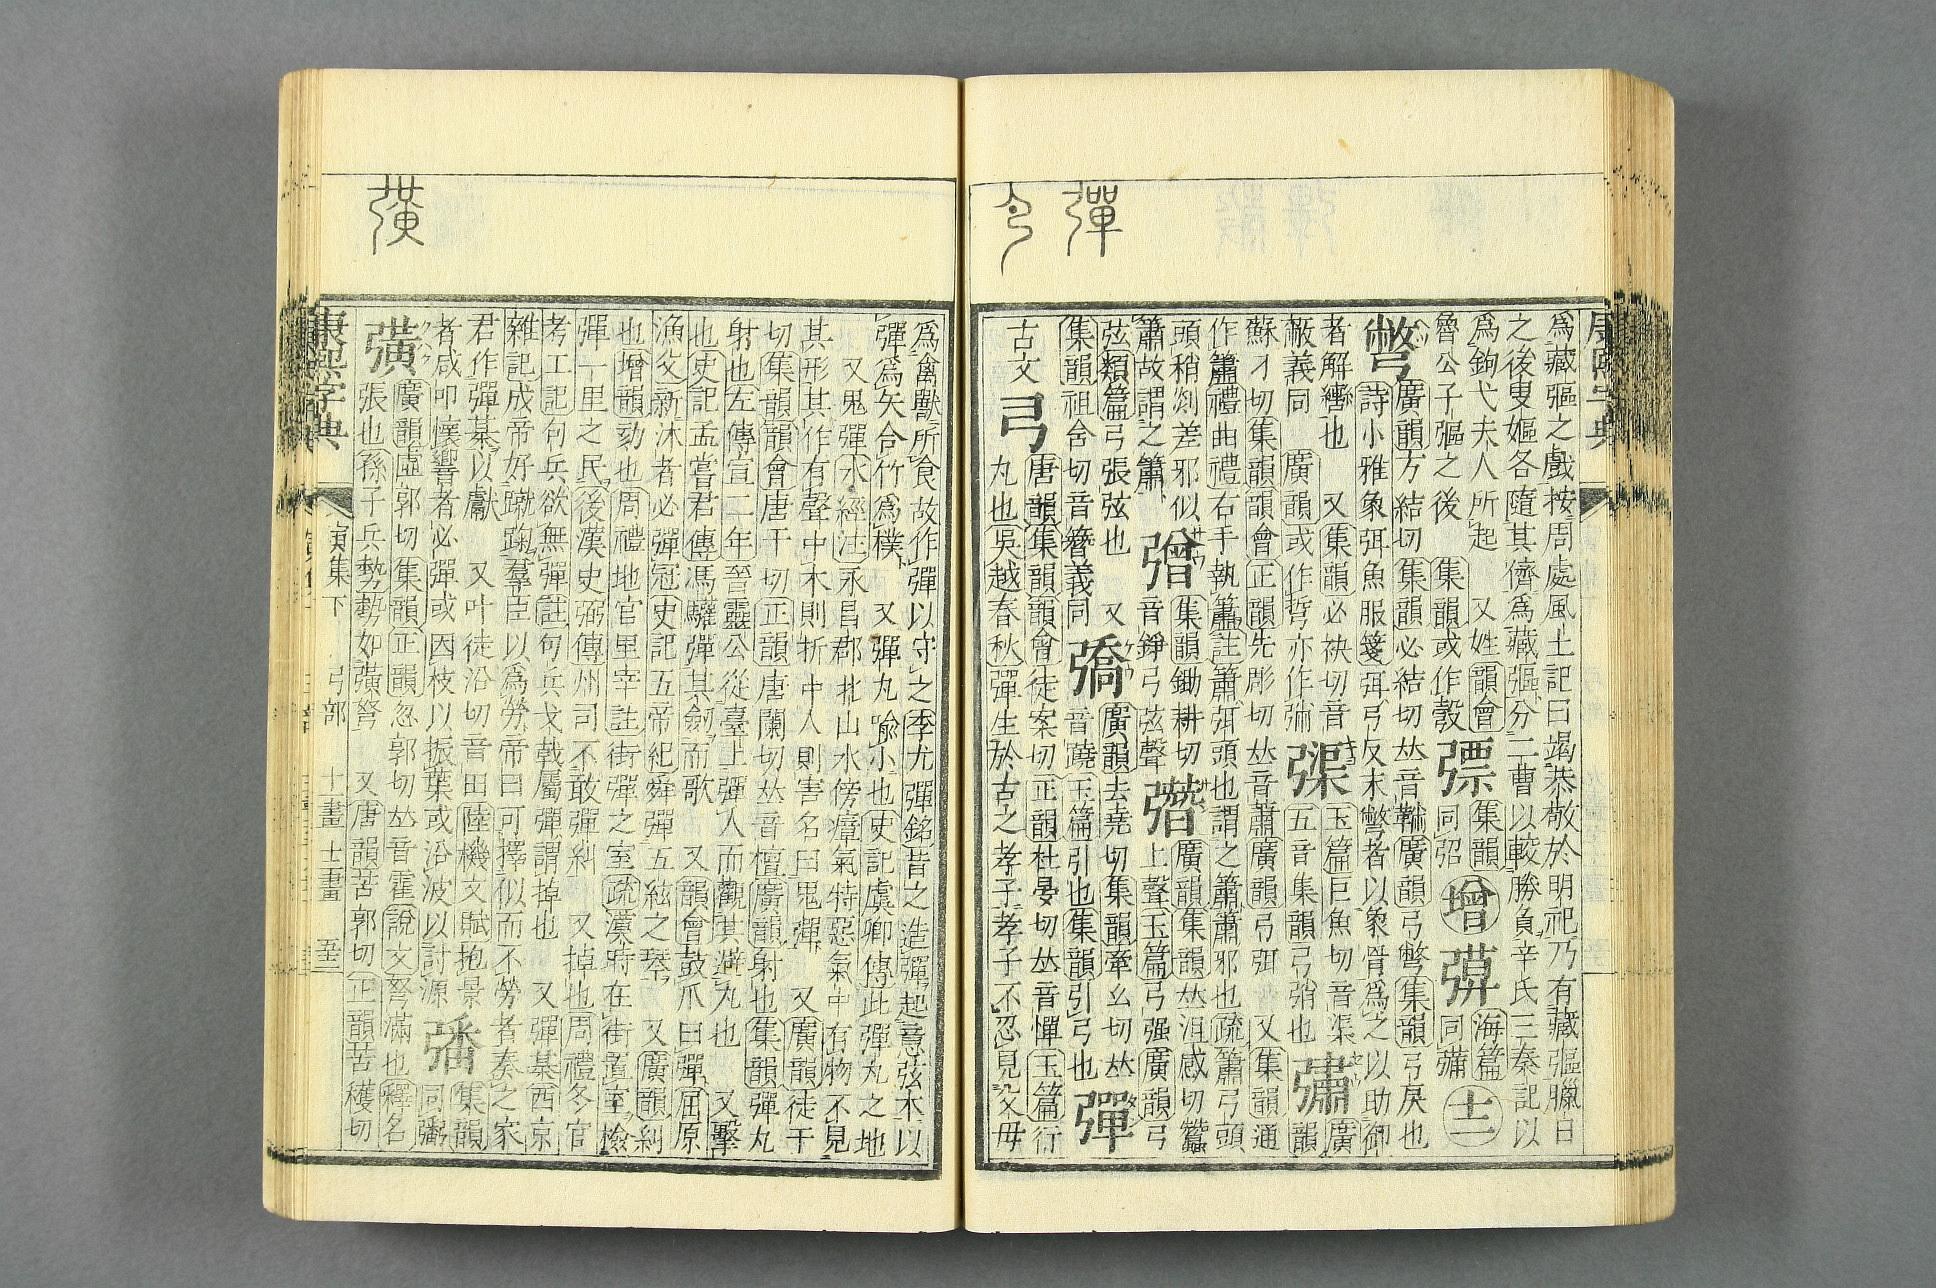 彈
爲藏彄之戲按周處風土記曰竭恭敬於明祀乃有藏彄臘日
之後叟嫗各隨其儕爲藏彄分二曹以較勝負辛氏三秦記以
爲鉤弋夫人所起 又姓韻會
魯公子彄之後 集韻或作彀
彯
集韻
同弨
增
彅
海篇
同彇
十二
彆
廣韻方結切集韻必結切𠀤音䩛廣韻弓彆集韻弓戾也
詩小雅象弭魚服箋弭弓反末彆者以象骨爲之以助御
者解轡也 又集韻必袂切音
蔽義同 廣韻或作㧅亦作𢐳
玉篇巨魚切音渠
五音集韻弓弰也
彇
廣韻
蘇彫切集韻韻會正韻先彫切𠀤音蕭廣韻弓弭 又集韻通
作簫禮曲禮右手執簫註簫弭頭也謂之簫簫邪也疏簫弓頭
頭稍剡差邪似
簫故謂之簫
集韻鋤耕切
音錚弓弦聲
廣韻集韻𠀤沮感切蠶
上聲玉篇弓强廣韻弓
弦類篇弓張弦也 又
集韻祖含切音簪義同
廣韻去堯切集韻牽幺切𠀤
音蹺玉篇引也集韻引弓也
彈
古文
弓
唐韻集韻韻會徒案切正韻杜晏切𠀤音憚玉篇行
丸也吳越春秋彈生於古之孝子孝子不忍見父母
爲禽獸所食故作彈以守之李尤彈銘昔之造彈起意弦木以
彈爲矢合竹爲樸 又彈丸喻小也史記虞卿傳此彈丸之地
又鬼彈水經注永昌郡北山水傍瘴氣特惡氣中有物不見
其形其作有聲中木則折中人則害名曰鬼彈 又廣韻徒干
切集韻韻會唐干切正韻唐闌切𠀤音檀廣韻射也集韻彈丸
射也左傳宣二年晉靈公從臺上彈人而觀其避丸也 又擊
也史記孟嘗君傳馮驩彈其劒而歌 又韻會鼓爪曰彈屈原
漁父新沐者必彈冠史記五帝紀舜彈五絃之琴 又廣韻糾
也增韻劾也周禮地官里宰註街彈之室疏漢時在街置室檢
彈一里之民後漢史弼傳州司不敢彈糾 又掉也周禮冬官
考工記句兵欲無彈註句兵戈戟屬彈謂掉也 又彈棊西京
雜記成帝好蹴踘羣臣以爲勞帝曰可擇似而不勞者奏之家
君作彈棊以獻 又叶徒沿切音田陸機文賦抱景
者咸叩懷響者必彈或因枝以振葉或沿波以討源
集韻
同彌
彉
廣韻虛郭切集韻正韻忽郭切𠀤音霍說文弩滿也釋名
張也孫子兵勢勢如彉弩 又唐韻苦郭切正韻苦穫切
康熙字典
寅集下 弓部 十一畫 十二畫